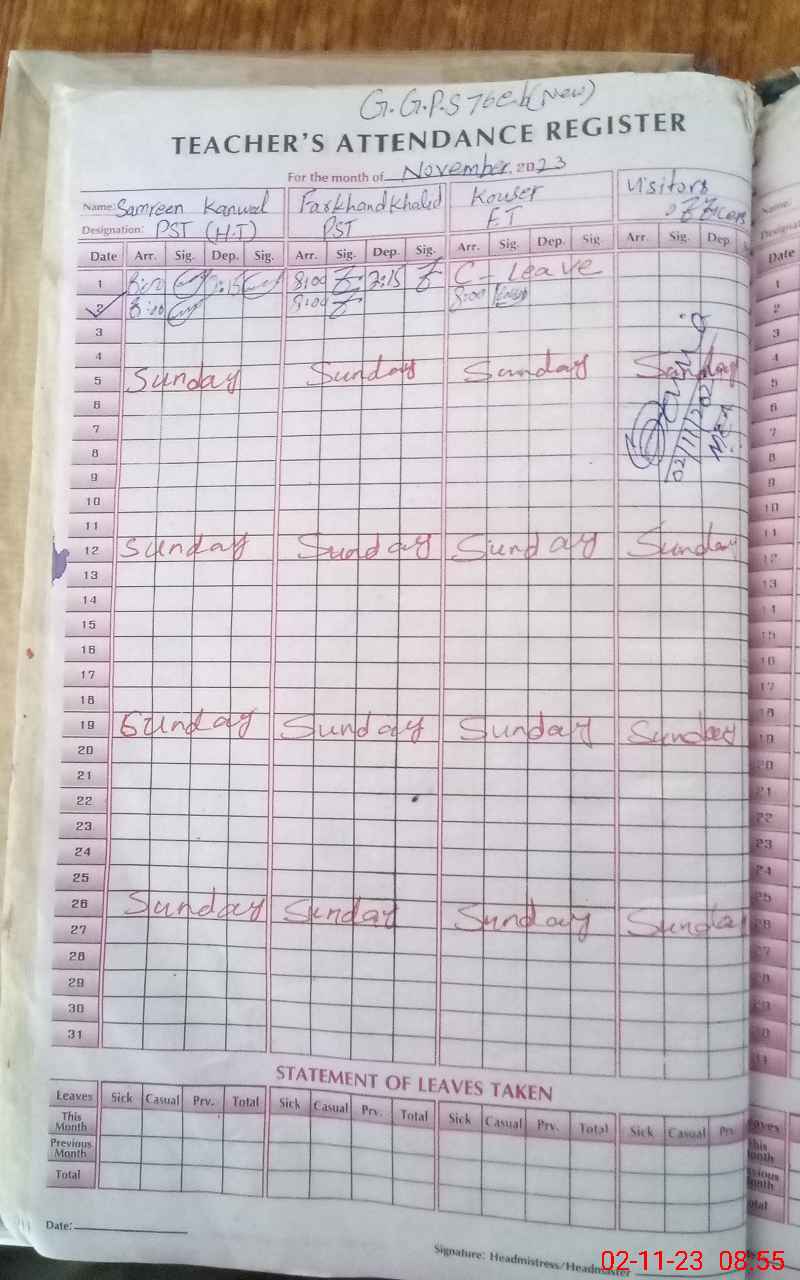 G.G.P.S 76 E.B (New)
TEACHER'S ATTENDANCE REGISTER
For the month of November 2023
Name: Samreen Kanwal Farkhand Khalid Kouser Visitors
Designation: PST (H.T) PST F.T
Date Arr. Sig. Dep. Sig. Arr. Sig. Dep. Sig. Arr. Sig. Dep. Sig. Arr. Sig. Dep.
1 8:00 2:15 8:00 2:15 C-Leave
2 8:00 8:00 8:00
3
4
5 Sunday Sunday Sunday Sunday
6
7
8
9
10
11
12 Sunday Sunday Sunday Sunday
13
14
15
16
17
18
19 Sunday Sunday Sunday Sunday
20
21
22
23
24
25
26 Sunday Sunday Sunday Sunday
27
28
29
30
31
STATEMENT OF LEAVES TAKEN
Leaves Sick Casual Prv. Total Sick Casual Prv. Total Sick Casual Prv. Total Sick Casual
This Month
Previous Month
Total
Date:
Signature: Headmistress/Headmaster
02-11-23 08:55